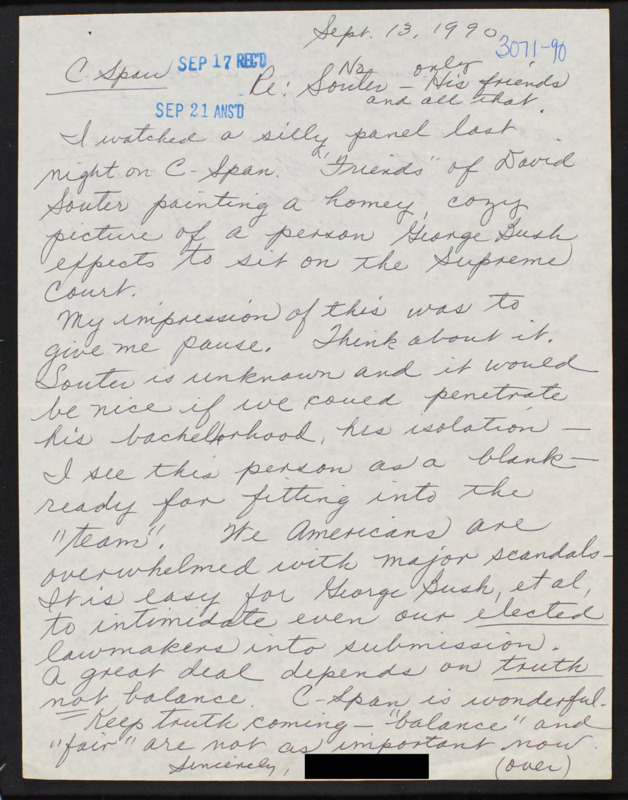 Sept. 13, 1990
3071-90
C-Span
SEP 17 REC'D
Re: Souter – His only friends
and all that.
SEP 21 ANS'D
I watched a silly panel last
night on C-Span. "Friends" of David
Souter painting a homey, cozy
picture of a person George Bush
expects to sit on the Supreme
Court.
My impression of this was to
give me pause. Think about it.
Souter is unknown and it would
be nice if we could penetrate
his bachelorhood, his isolation –
I see this person as a blank –
ready for fitting into the
"team". We Americans are
overwhelmed with major scandals –
It is easy for George Bush, et al,
to intimidate even our elected
lawmakers into submission.
A great deal depends on truth
not balance. C-Span is wonderful.
Keep truth coming – "balance" and
"fair" are not as important now.
Sincerely,
(over)